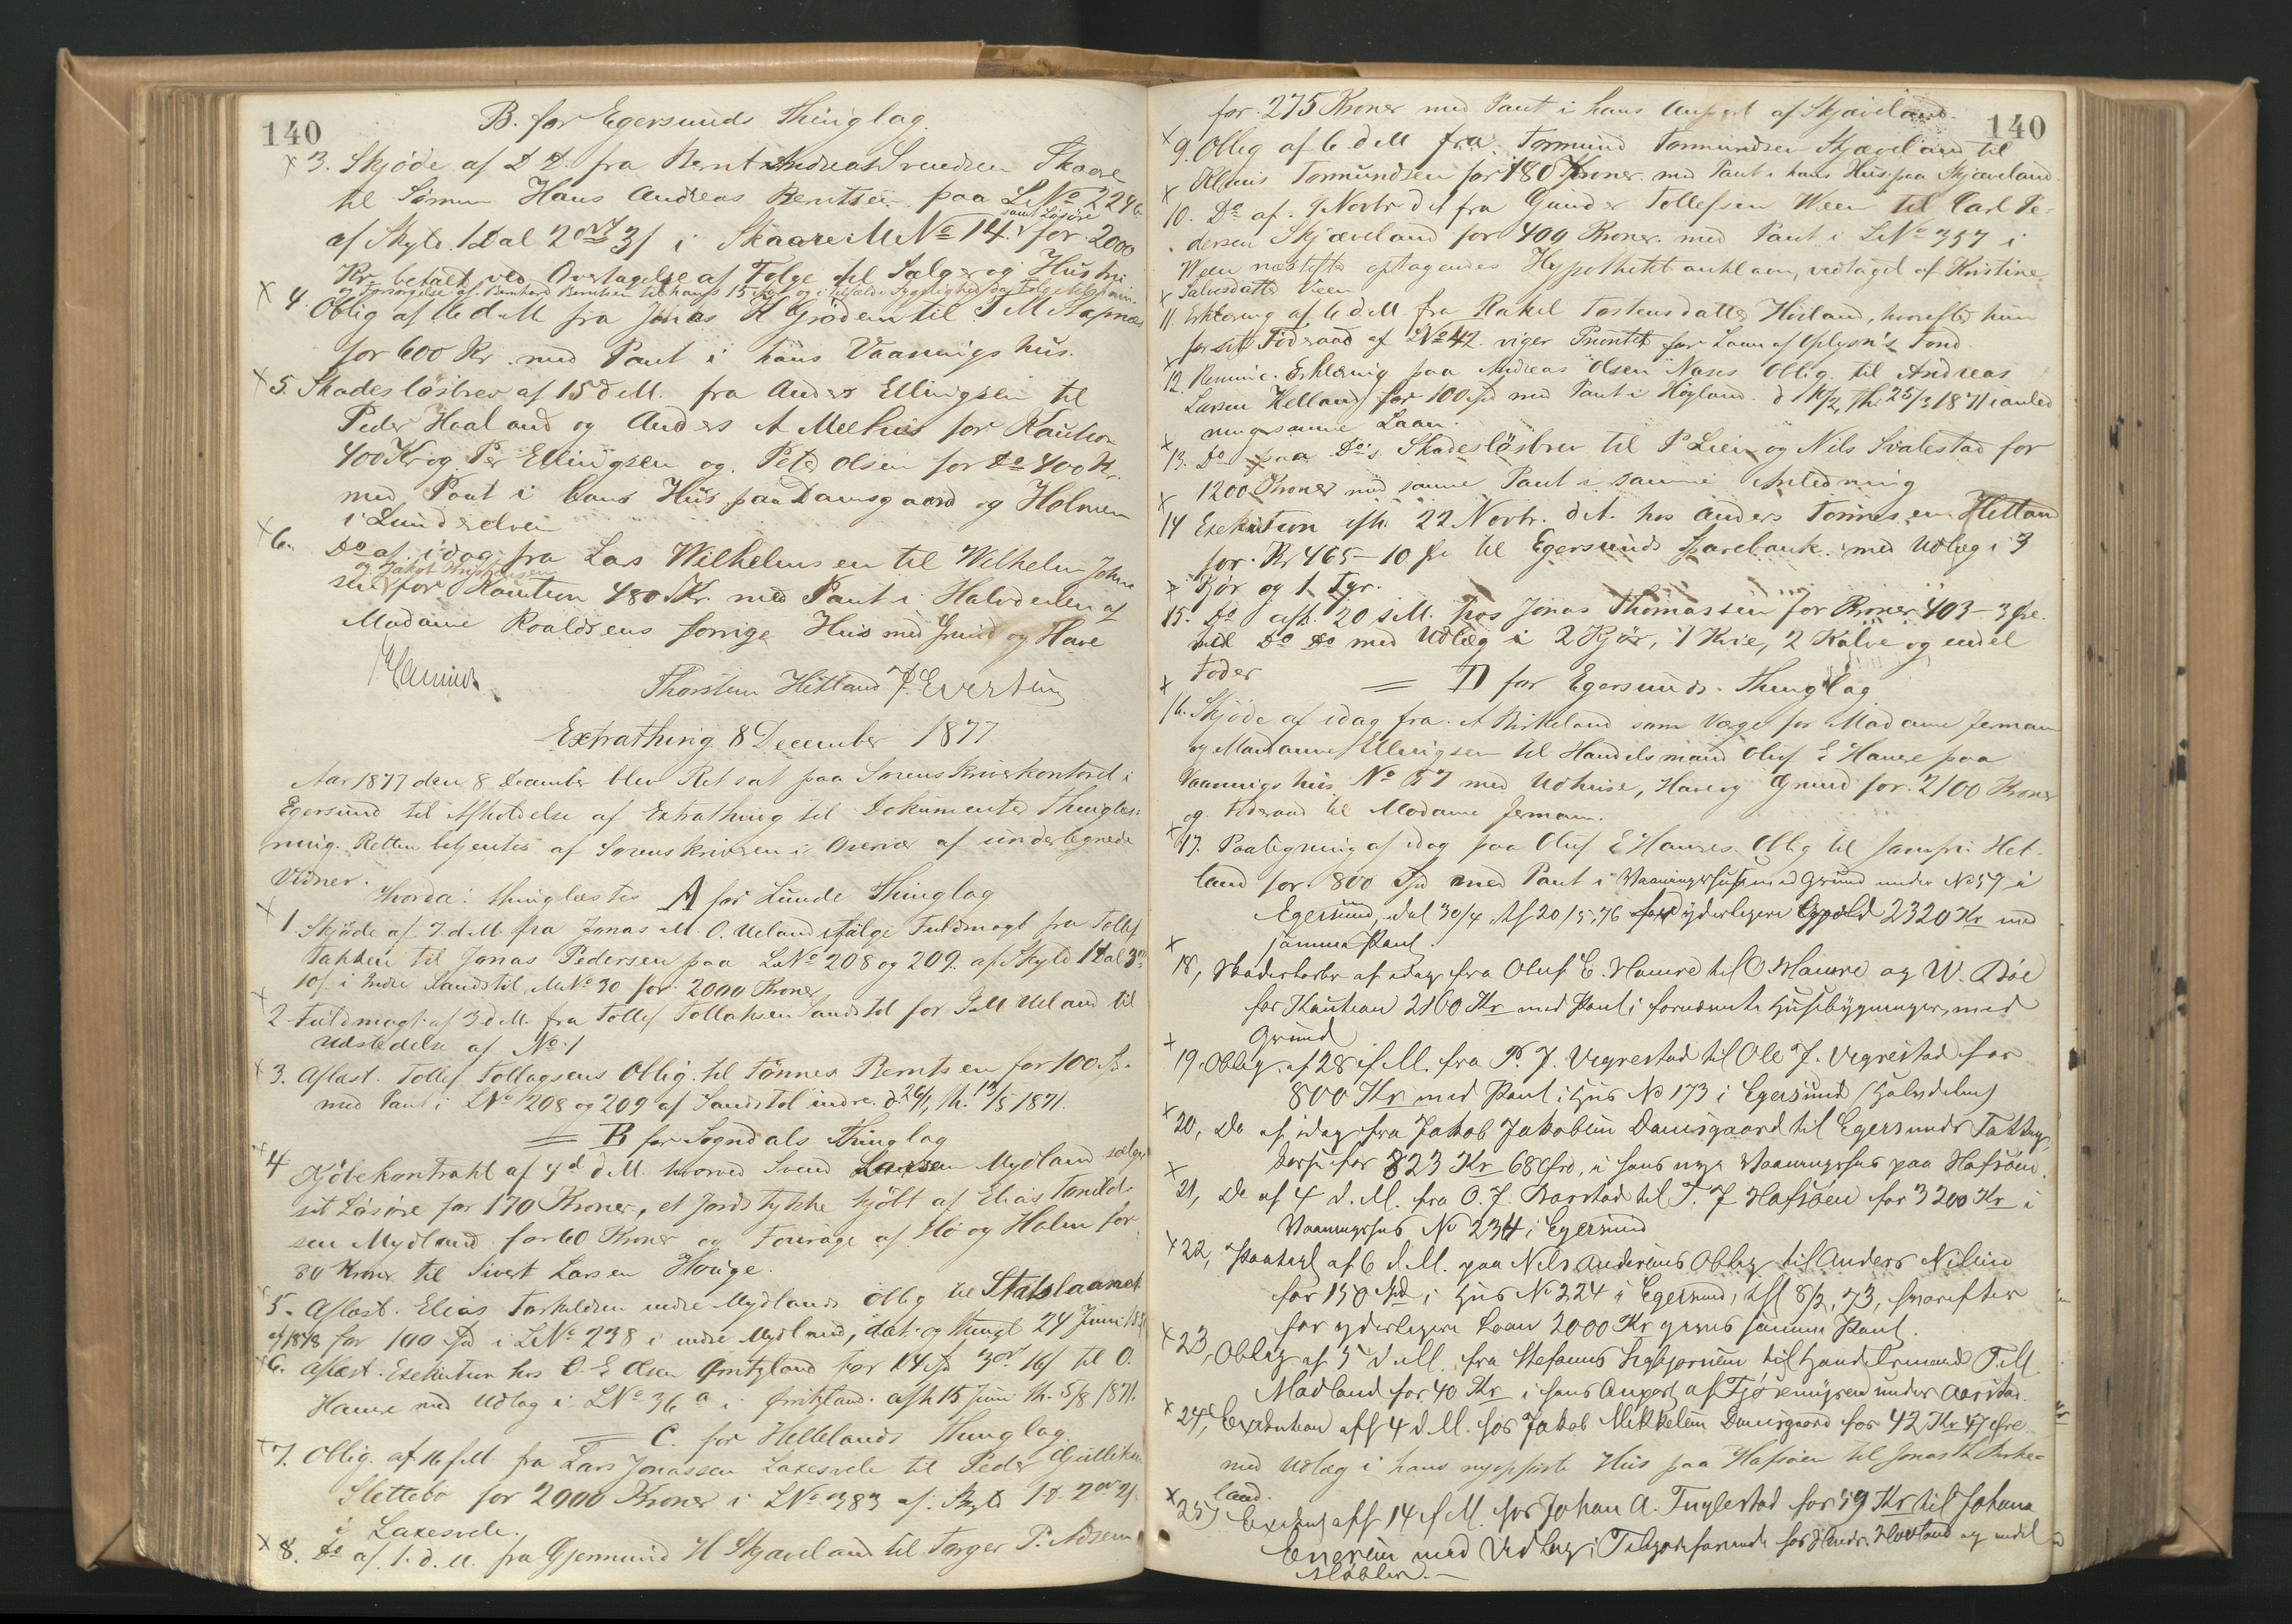 140
B. for Egersunds Thinglag.
3. Skjöde af D. D. fra Bernt Andreas Svendsen Skaare
til Sönnen Hans Andreas Berntsen paa LNº 229b
af Skyld 1 Dal 2 ort 3 s i Skaare MNº 14. samt Lösöre for 2000
Kr. betalt ved Overtagelse af Følge til Sælger og Hustru
og Forsørgelse af Bernhard Berntsen til hans 15 Aar og i tilfælde Sygelighed
4. Oblig af 16 d M fra Jonas K Grödem til T M Stapnæs
for 600 Kr. med Pant i hans Vaaningshus.
5. Skadeslösbrev af 15 d M. fra Anders Ellingsen til
Peder Haaland og Anders A Meehus for Kaution
400 Kr og Per Ellingsen og Peter Olsen for Do 400 K.
med Pant i hans Hus paa Damsgaard og Holmen
i Lunderelven
6. Do af idag fra Lars Wilhelmsen til Wilhelm John
sen og Jakob for Kaution 480 Kr. med Pant i Halvdelen af
Madame Roaldsens forrige Hus med Grund og Have
Thorsten Hetland J. Evertsen
Extrathing 8 December 1877
Aar 1877 den 8 December blev Ret sat paa Sorenskriverkontoret i
Egersund til Afholdelse af Extrathing til Dokumenters Thinglæs:
ning. Retten betjentes af Sorenskriveren i Overvær af undertegnede
Vidner.
Hvorda: thinglæstes A for Lunde Thinglag
1. Skjöde af 7 d M fra Jonas M. O. Ueland ifölge Fuldmagt fra Tollef
Takken til Jonas Pedersen paa LNº 208 og 209. af Skyld 1 Dal 3 ort
10 s i Indre Sandstöl MNº 30 for 2000 Kroner
2. Fuldmagt af 3 d M. fra Tollef Tollaksen Sandstöl for J M Ueland til
Udstedelse af Nº 1
3. Aflæst. Tollef Tollagsens Oblig. til Tönnes Berntsen for 100 S.
med Pant i LNº 208 og 209 af Sandstöl indre. d. 26/1, th. 12/5 1871.
= B for Sogndals Thinglag
4 Kjöbekontrakt af 4d d M. hvorved Svend Larsen Mydland sælger
sit Lösöre for 170 Kroner, et Jordstykke kjöbt af Elias Torkild-
sen Mydland for 60 Kroner og Fourage af Hö og Halm for
80 Kroner til Sivert Larsen Hauge.
5. Aflæst. Elias Torkildsen indre Mydlands Oblig til Statslaanet
af 1848 for 100 Spd i LNº 238 i indre Mydland, dat. og thingl 24 Juni
6. Aflæst. Exekution hos O. E Olsen for 14 Spd 3 ort 16 s til O.
Hauge med Udlæg i LNº 36 a i afh 15 Juni th. 5/8 1871.
= C. for Hellelands Thinglag.
7. Oblig. af 16 f M fra Lars Jonassen Laxesvele til Peder Gulliksen
Slettebö for 2000 Kroner i LNº 383 af Skyld 1 d. 2 ort 2 s
i Laxesvele.
8. Do af 1. d. M. fra Gjermund H Skjæveland til Torger P.
140
for 275 Kroner med Pant i hans Anpart af Skjæveland.
9. Oblig af 6 d M fra Tormund Tormundsen Skjæveland til
Klaus Tormundsen for 180 Kroner med Pant i hans Hus paa Skjæveland.
10. Do af 9 Novbr d A fra Gunder Tollefsen Ween til Carl Pe-
dersen Skjæveland for 400 Kroner med Pant i LNº 357 i
Ween næstefter optagendes Hypothekbanklaan, vedtaget af Kristine
Salvesdatter Veen
11. Erklæring af 6 d M. fra Rakel Tostensdatter Hövland, hvorefter hun
for sit Föderaad af LNº 42 viger Prioritet for Laan af Oplysn's Fond.
12. Remine. Erklæring paa Andreas Olsen Næses Oblig. til Andreas
Larsen Helland for 100 Spd med Pant i Högland. d 18/2, th. 25/3 1871 i anled
ning samme Laan.
13. Do paa Do's Skadeslösbrev til P Lien og Nils Svalestad for
1200 Kroner med samme Pant i samme Anledning
14 Exekution afh. 22 Novbr. d A. hos Anders Tönnesen Hetland
for Kr 465-10 Öre til Egersunds Sparebank. med Udlæg i 3
Kjör og 1 Tyr.
15. Do afh. 20 s M. hos Jonas Thomassen for Kroner 403-3 Öre.
til Do Do med Udlæg i 2 Kjör, 1 Kvie, 2 Kalve og endel
Foder
= D for Egersunds Thinglag
16. Skjöde af idag fra A Birkeland som Værge for Madame Jerman
og Madame Ellingsen til Handelsmand Oluf E Hauge paa
Vaaningshus Nº 57 med Udhuse, Have og Grund for 2100 Kroner
og Föderaad til Madame Jerman.
17. Paategning af idag paa Oluf E Hauges Oblig til Jomfru Het-
land for 800 Spd med Pant i Vaaningshuse med Grund under Nº 57 i
Egersund, dat 30/4, thl 20/5, 76 for yderligere Gjæld 2320 Kr med
samme Pant.
18, Skadesløsbr. af idag fra Oluf E. Hauge til O Hauge og W. Böe
for Kaution 2160 Kr med Pant i fornævnte Husebygninger, med
Grund
19. Oblig. af 28 f. M. fra P. J. Vegrestad til Ole J. Vegrestad for
800 Kr med Pant i Hus Nº 173 i Egersund (Halvdelen)
20, Do af idag fra Jakob Jakobsen Damsgaard til Egersunds Fattig-
kasse for 823 Kr 68 Öre, i hans nye Vaaningshus paa Hafsöen.
21, Do af 4 d. M. fra O. J. Barstad til T. J Hafsöen for 3200 Kr i
Vaaningshus Nº 234 i Egersund
22, Paategn af 6 d M. paa Nils Andersens Oblig til Anders Nilsen
for 150 Spd i Hus Nº 224 i Egersund, thl 8/2, 73, hvorefter
for yderligere Laan 2000 Kr gives samme Pant.
23, Oblig af 5 d M. fra Stefanus Sigbjørnsen til Handelsmand T. M.
Madland for 40 Kr i hans Anpart af Tjørnmyren under Aarstad.
24, Exekution afh 4 d. M. hos Jakob Mikkelsen Damsgaard for 42 Kr 47 Öre
med Udlæg i hans nyopførte Hus paa Hafsöen til Jonas Th Birke-
land.
25, Exekut afh 14 f M. hos Johan A. Fuglestad for 59 Kr til Johan
Enersen med Udlæg i Tilgodehavende hos Hovland og endel
Möbler.